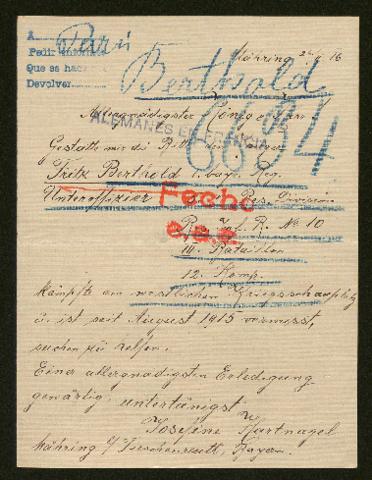 A
Pedir informe
Que se hac
Devolver
Pari
Mähring 26/6 16
Berthold
6634
Allergnädigster König u. Herr
ALEMANES EN FRANCIA
Gestatte mir die Bitte den
Fritz Berthold i. bayr. Reg.
Unteroffizier Res. Division
Fecho
R. Inf. R. No 10
e.s.e.
III. Bataillon
12. Komp.
kämpfte am westlichen Kriegsschauplatz
u. ist seit August 1915 vermisst,
suchen zu helfen.
Einer allergnädigsten Erledigung
gewärtig, untertänigst
Josefine Hartnagel
Mähring b/ Tirschenreuth, Bayern.